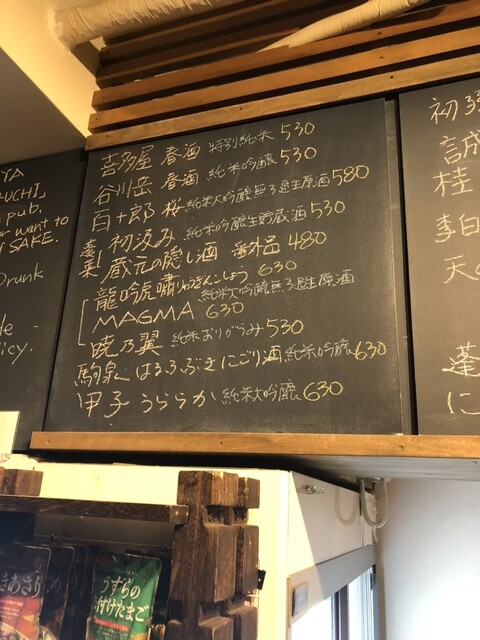 喜多屋 春酒 特別純米 530
谷川岳 春酒 純米吟醸 530
百十郎 桜 純米大吟醸無ろ過生原酒 580
初汲み 純米吟醸生貯蔵酒 530
蔵元の隠し酒 番外品 480
龍吟虎嘯 りゅうぎんこしょう 630
MAGMA 純米大吟醸無ろ過生原酒 630
暁乃翼 純米おりがらみ 530
駒泉 はるふぶきにごり酒 純米吟醸 630
甲子 うららか 純米大吟醸 630
YA
UCHI」
pub.
r want to
SAKE.
Drunk
icy.
初
誠
桂
李白
天の
蓬
に
きあさり
うずらの
味付けたまご